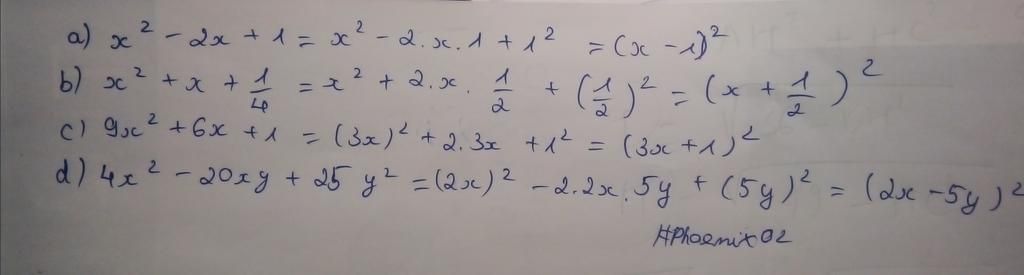 a) x² - 2x + 1 = x² - 2.x.1 + 1² = (x - 1)²
b) x² + x + 1/4 = x² + 2.x. 1/2 + (1/2)² = (x + 1/2)²
c) 9x² + 6x + 1 = (3x)² + 2.3x + 1² = (3x + 1)²
d) 4x² - 20xy + 25y² = (2x)² - 2.2x.5y + (5y)² = (2x - 5y)²
#Phoenix02